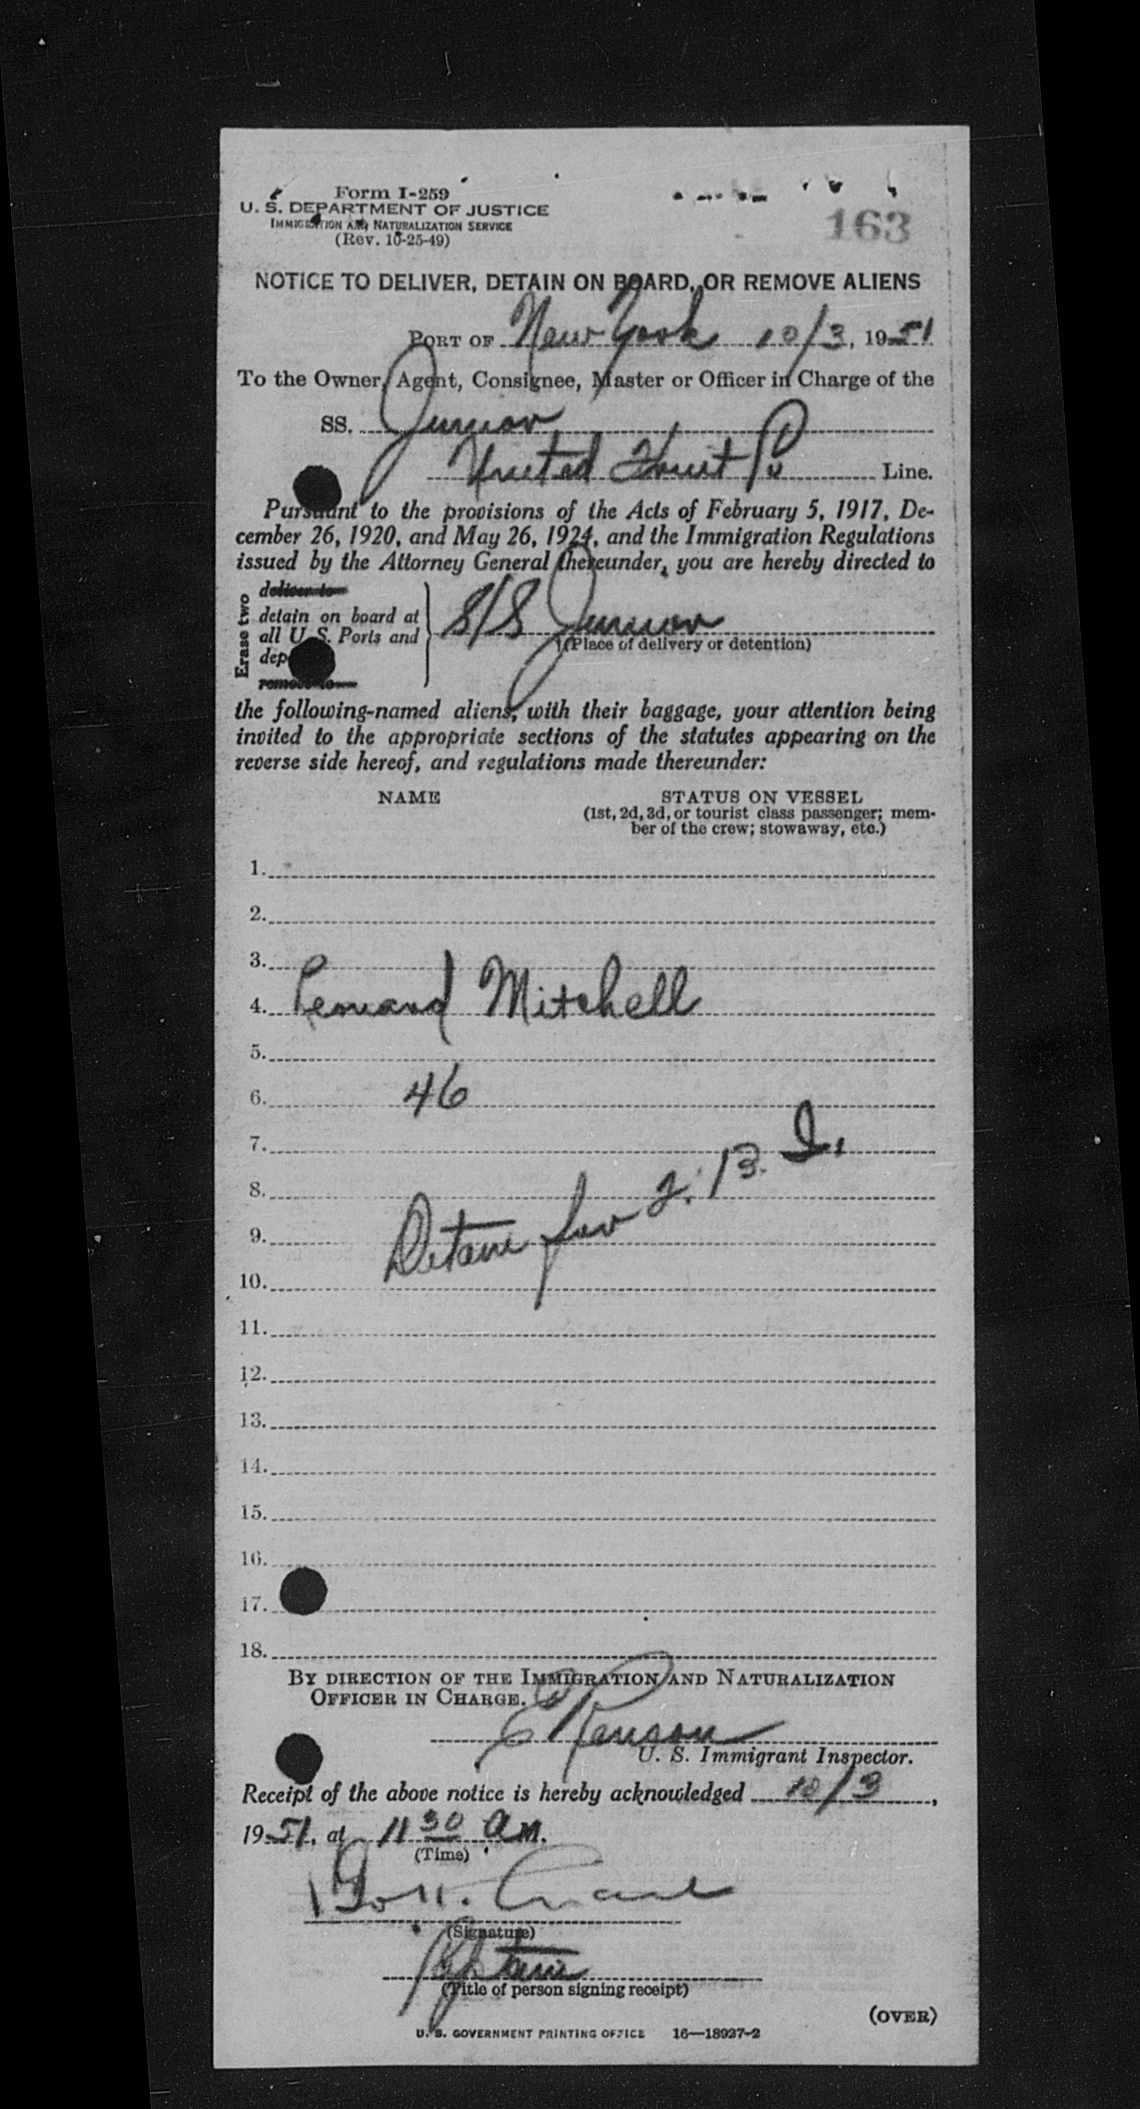 Form I-259
U. S. DEPARTMENT OF JUSTICE
IMMIGRATION AND NATURALIZATION SERVICE
(Rev. 10-25-49)
163
NOTICE TO DELIVER, DETAIN ON BOARD, OR REMOVE ALIENS
PORT OF New York 10/3, 1951
To the Owner, Agent, Consignee, Master or Officer in Charge of the
SS. Junior
United Fruit Co Line.
Pursuant to the provisions of the Acts of February 5, 1917, De-
cember 26, 1920, and May 26, 1924, and the Immigration Regulations
issued by the Attorney General thereunder, you are hereby directed to
Erase two
deliver to
detain on board at
all U. S. Ports and
S/S Junior
(Place of delivery or detention)
remove to
the following-named aliens, with their baggage, your attention being
invited to the appropriate sections of the statutes appearing on the
reverse side hereof, and regulations made thereunder:
NAME STATUS ON VESSEL
(1st, 2d, 3d, or tourist class passenger; mem-
ber of the crew; stowaway, etc.)
1.
2.
3.
4. Leonard Mitchell
5.
6. 46
7.
8.
9. Detain for
10.
11.
12.
13.
14.
15.
16.
17.
18.
BY DIRECTION OF THE IMMIGRATION AND NATURALIZATION
OFFICER IN CHARGE.
U. S. Immigrant Inspector.
Receipt of the above notice is hereby acknowledged 10/3,
1951, at 11 30 AM.
(Time)
(Signature)
Captain
(Title of person signing receipt)
(OVER)
U. S. GOVERNMENT PRINTING OFFICE 16—18927-2